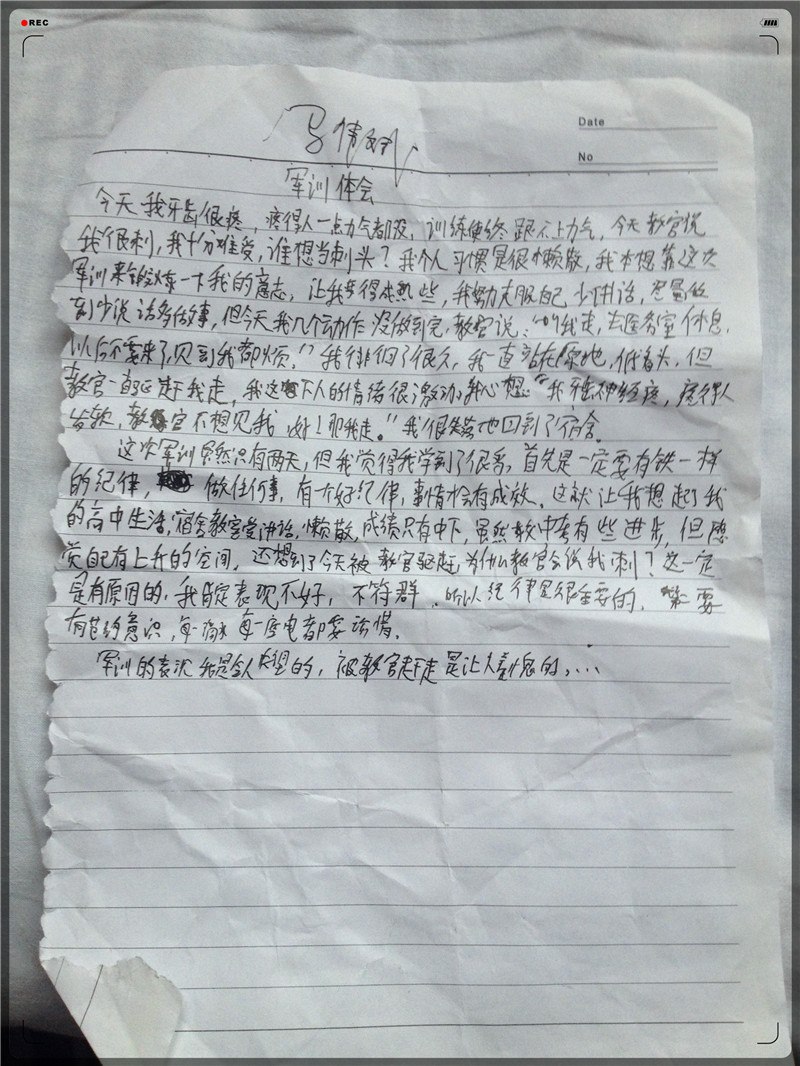 REC
Date
No
马伟
军训体会
今天我牙齿很疼，疼得人一点力气都没，训练使终跟不上力气，今天教官说
我很刺，我十分难受，谁想当刺头？我个人习惯是很懒散，我本想靠这次
军训来锻炼一下我的意志，让我变得成熟些，我努力克服自己少讲话，尽量做
到少说话多做事，但今天我几个动作没做到完，教官说："我走，去医务室休息，
以后不要来了，见到我都烦。"我徘徊了很久，我一直站在原地，低着头，但
教官一直赶我走，我这个人的情绪很激动，我心想："我牙神经疼，疼得人
发软，教官不想见我，好！那我走。"我很失落地回到了宿舍。
这次军训虽然只有两天，但我觉得我学到了很多，首先是一定要有铁一样
的纪律，做任何事，有大好纪律，事情才会有成效。这就让我想起了我
的高中生活，宿舍教室爱讲话，懒散，成绩只有中下，虽然中考有些进步，但感
觉自己有上升的空间，还想到了今天被教官驱赶，为什么教官会说我刺？这一定
是有原因的，我肯定表现不好，不符群，所以纪律是很重要的，要
有节约意识，每一滴水每一度电都要珍惜。
军训的表现我是令人失望的，被教官赶走是让人羞愧的，...